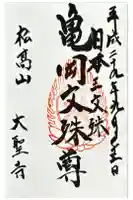 平成二十九年九月十三日
日本三文殊
亀岡文殊尊
松高山
大聖寺